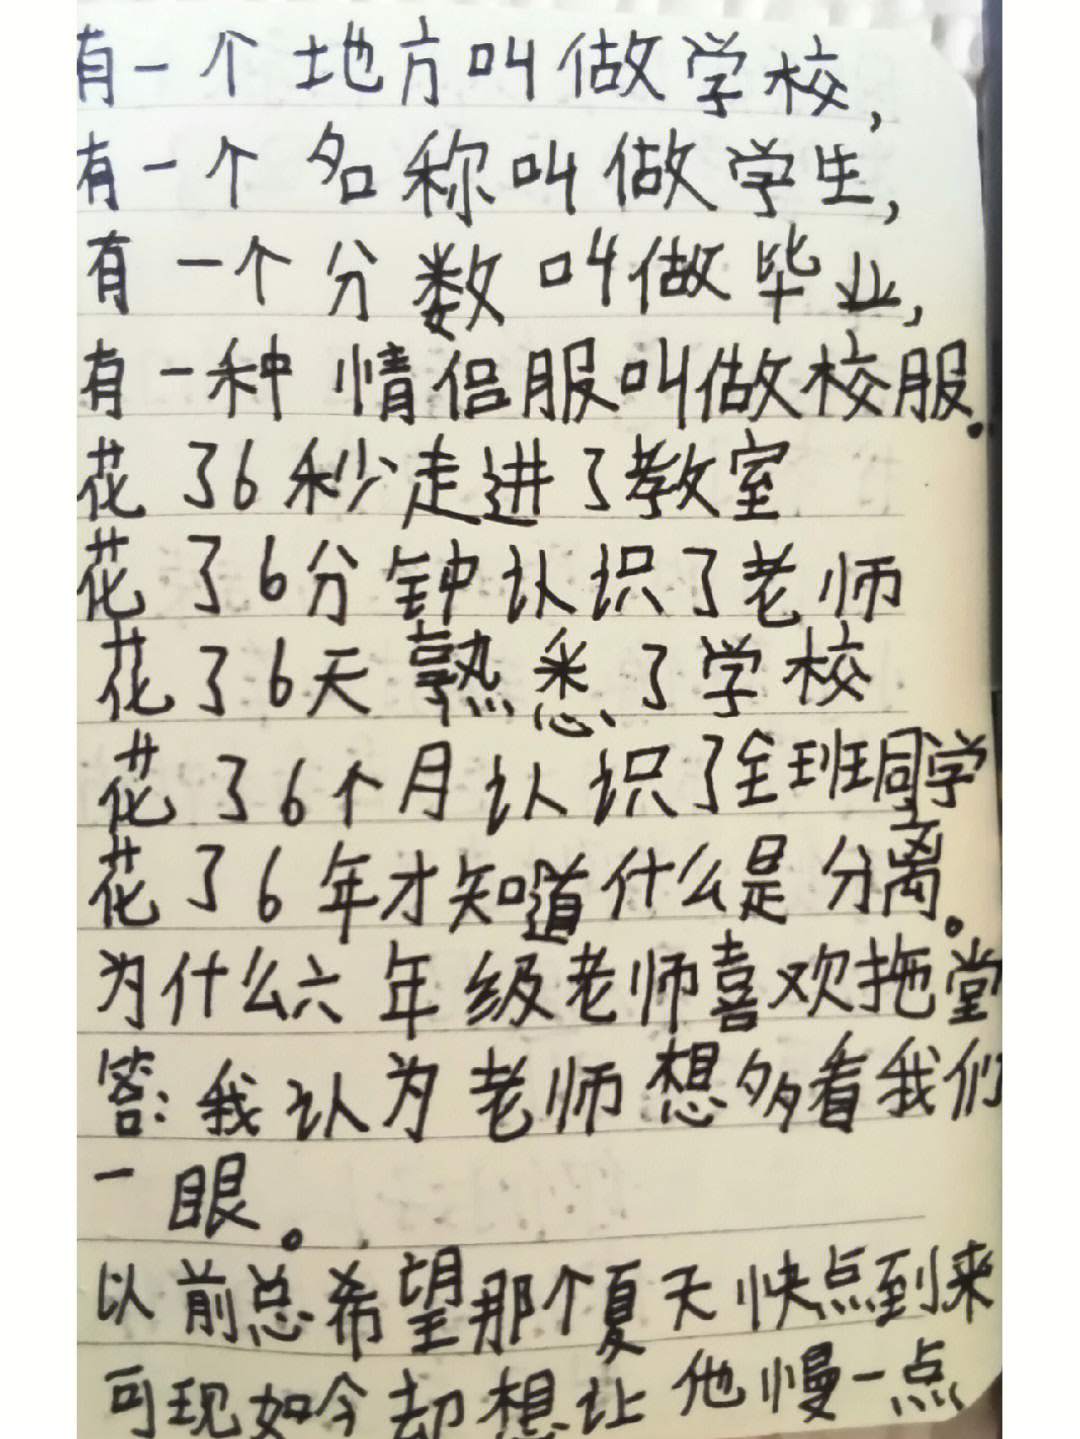 有一个地方叫做学校,
有一个名称叫做学生,
有一个分数叫做毕业,
有一种情侣服叫做校服.
花了6秒走进了教室
花了6分钟认识了老师
花了6天熟悉了学校
花了6个月认识了全班同学
花了6年才知道什么是分离.
为什么六年级老师喜欢拖堂
答:我认为老师想多看我们
一眼。
以前总希望那个夏天快点到来
可现如今却想让他慢一点